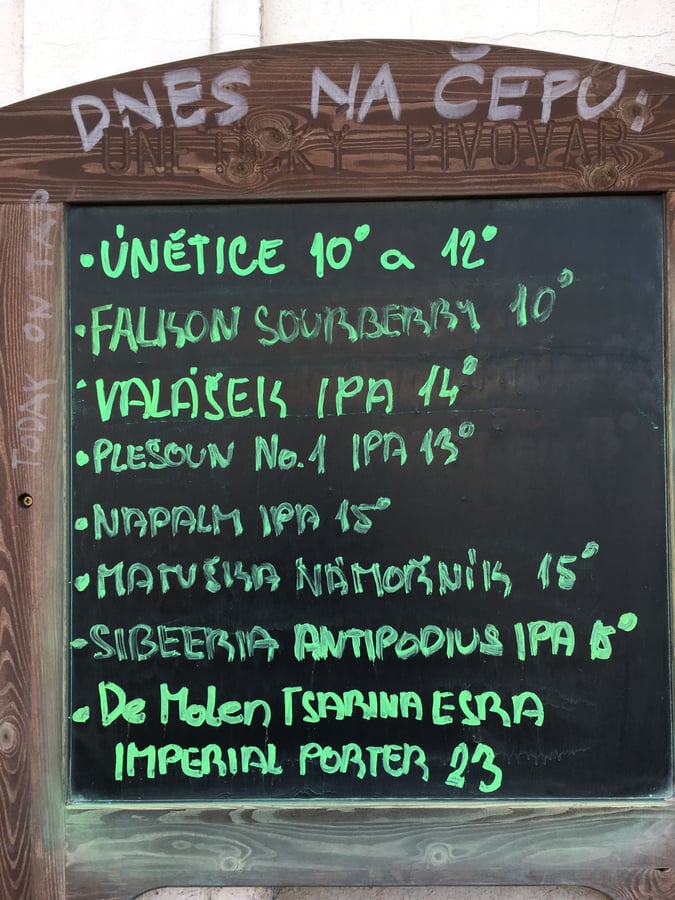 DNES NA ČEPU.
ÚNĚTICKÝ PIVOVAR
TODAY ON TAP
•ÚNĚTICE 10° a 12°
•FALKON SOURBERRY 10°
•VALÁŠEK IPA 14°
•PLEŠOUN No.1 IPA 13°
•NAPALM IPA 15°
•MATUŠKA NÁMOŘNÍK 15°
•SIBEERIA ANTIPODIUS IPA 15°
•De Molen TSARINA ESRA
IMPERIAL PORTER 23